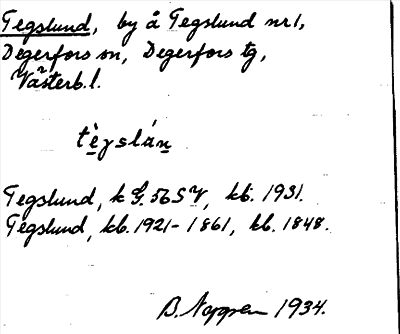 Tegslund, by å Tegslund nr 1,
Degerfors sn, Degerfors tg,
Västerb. l.
tègslán
Tegslund, k G. 565 V, kb. 1931.
Tegslund, kb. 1921-1861, kb. 1848.
B. 1934.